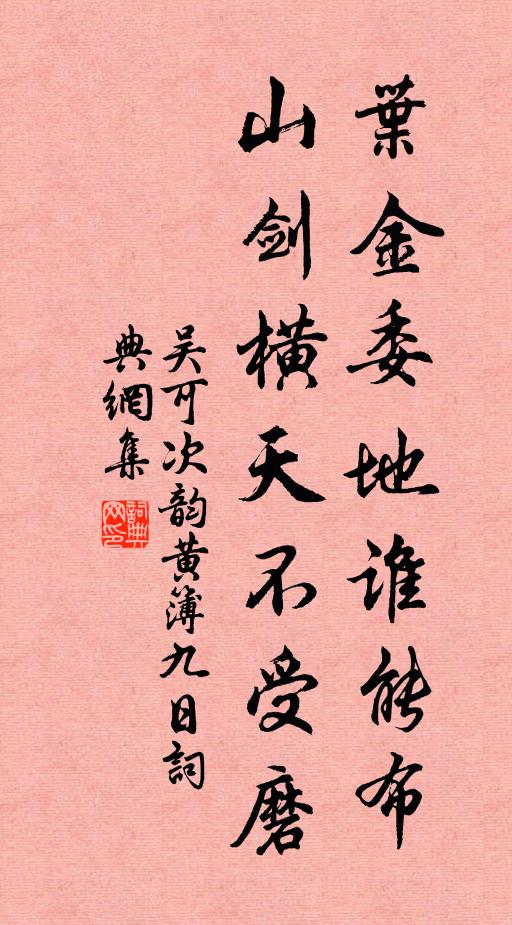 葉金委地谁能布
山剑橫天不受磨
吴可次韵黄簿九日詞
典網集
詞典网印